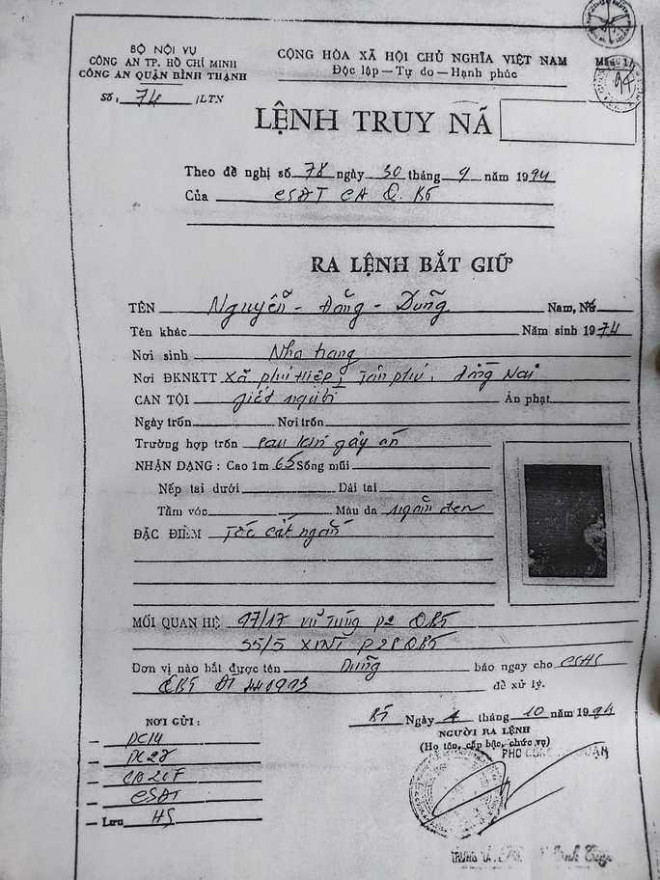 BỘ NỘI VỤ
CÔNG AN TP. HỒ CHÍ MINH
CÔNG AN QUẬN BÌNH THẠNH
Số: 74 /LTN
CỘNG HÒA XÃ HỘI CHỦ NGHĨA VIỆT NAM
Độc lập — Tự do — Hạnh phúc
LỆNH TRUY NÃ
Theo đề nghị số 78 ngày 30 tháng 9 năm 1994
Của CSĐT CA Q. BT
RA LỆNH BẮT GIỮ
TÊN Nguyễn - Đăng - Dũng Nam, Nữ
Tên khác Năm sinh 1974
Nơi sinh Nha trang
Nơi ĐKNKTT Xã phú Hiệp, Tân phú, Đồng Nai
CAN TỘI giết người Án phạt
Ngày trốn Nơi trốn
Trường hợp trốn sau khi gây án
NHẬN DẠNG : Cao 1m 65 Sống mũi
Nếp tai dưới Dái tai
Tầm vóc Màu da ngăm đen
ĐẶC ĐIỂM Tóc cắt ngắn
MỐI QUAN HỆ 97/17 Vũ Tùng P2 QBT
55/5 XVNT P28 QBT
Đơn vị nào bắt được tên Dũng báo ngay cho CSHS
QBT ĐT 440993 để xử lý.
BT Ngày 4 tháng 10 năm 1994
NGƯỜI RA LỆNH
(Họ tên, cấp bậc, chức vụ)
NƠI GỬI :
— PC14
— PC28
—
— CSĐT
— Lưu HS